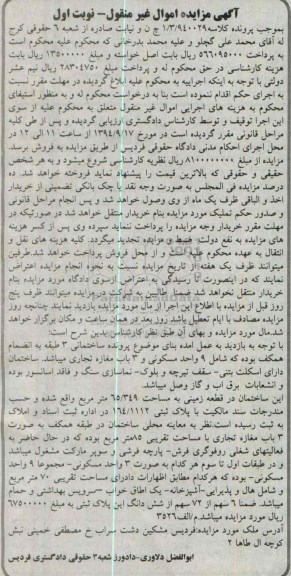 آگهی مزایده اموال غیر منقول- نوبت اول
بموجب پرونده کلاسه ۱/۳/۹۴۰۰۲۹ ج ن و نیابت صادره از شعبه ۶ حقوقی کرج
له آقای محمد علی گچلو و علیه محمد بدرخانی که محکوم علیه محکوم است
به پرداخت ۵۶۶۰۹۵۰۰۰ ریال بابت اصل خواسته و مبلغ ۱۳۵۰۰۰۰ ریال بابت
هزینه کارشناسی در حق محکوم له و پرداخت مبلغ ۲۸۳۰۴۷۵۰ ریال نیم عشر
دولتی با توجه به اینکه اجرائیه به محکوم علیه ابلاغ گردیده در مهلت مقرر نسبت
به اجرای حکم اقدام ننموده است بنا به درخواست محکوم له و به منظور استیفای
محکوم به هزینه های اجرایی اموال غیر منقول متعلق به محکوم علیه از سوی
این اجرا توقیف و توسط کارشناس دادگستری ارزیابی گردیده و پس از طی کلیه
مراحل قانونی مقرر گردیده است در مورخ ۱۳۹۴/۹/۱۷ از ساعت ۱۱ الی ۱۲ در
محل اجرای احکام مدنی دادگاه حقوقی فردیس از طریق مزایده به فروش برسد
مزایده از مبلغ ۸۱۰۰۰۰۰۰۰۰ ریال نظریه کارشناسی شروع میشود و به هر شخص
حقیقی و حقوقی که بالاترین قیمت را پیشنهاد نماید فروخته خواهد شد. ده
درصد مزایده فی المجلس به صورت وجه نقد یا چک بانکی تضمینی از خریدار
اخذ و الباقی ظرف یک ماه از وی وصول خواهد شد و پس انجام مراحل قانونی
و صدور حکم تملیک مورد مزایده بنام خریدار منتقل خواهد شد در صورتیکه در
مهلت مقرر خریدار وجه مزایده را پرداخت ننماید سپرده وی پس از کسر هزینه
های مزایده به نفع دولت ضبط و مزایده تجدید میگردد. کلیه هزینه های نقل و
انتقال به عهده محکوم علیه و از محل فروش پرداخت خواهد شد.طرفین
میتوانند ظرف یک هفته از تاریخ مزایده نسبت به نحوه انجام مزایده اعتراض
نمایند که در اینصورت تا رسیدگی به اعتراض ازسوی دادگاه مورد مزایده بنام
خریدار منتقل نخواهد شد ضمنا طالبین به شرکت در مزایده میتوانند ظرف پنج
روز قبل از مزایده با اطلاع این اجرا از مال مورد مزایده بازدید نمایند چنانچه روز
مزایده مصادف با ایام تعطیل باشد روز بعد در همان ساعت و مکان برگزار خواهد
شد.مال مورد مزایده و بهای آن طبق نظر کارشناس بدین شرح است:
با توجه به بازدید به عمل امده بنای موضوع پرونده ساختمانی ۳ طبقه به انضمام
همکف بوده که شامل ۹ واحد مسکونی و ۳ باب مغازه تجاری میباشد. ساختمان
دارای اسکلت بتنی- سقف تیرچه و بلوک- نماسازی سنگ و فاقد اسانسور بوده
و انشعابات برق اب و گاز وصل میباشد.
این ساختمان در قطعه زمینی به مساحت ۶۵/۳۴۹ متر مربع واقع شده و حسب
مندرجات سند مالکیت با پلاک ثبتی ۱۶۴/۱۱۱۲ در اداره ثبت اسناد و املاک
به ثبت رسیده است.نظر به معاینه محلی ساختمان در طبقه همکف به صورت
۳ باب مغازه تجاری با مساحت تقریبی ۸۵متر مربع بوده که در حال حاضر به
فعالیتهای شغلی رفوگری فرش- پارچه فرشی و سوپر مارکت مشغول میباشد
و در طبقات اول تا سوم هر کدام به صورت ۳ واحد مسکونی- مجموعا ۹ واحد
مسکونی- بوده که هرکدام مطابق اظهارات دادرای مساحت تقریبی ۷۰ متر مربع
و شامل هال و پذیرایی-آشپزخانه- یک اطاق خواب -سرویس بهداشتی و حمام
میباشد. ضمنا ۶ سهم از ۷۲ سهم از شش دانگ این پلاک ثبتی به مبلغ ۶۷۵۰۰۰۰۰۰
ریال مورد مزایده میباشد.م/الف۳۵۲۶
آدرس ملک مورد مزایده:فردیس مشکین دشت سراب خ مصطفی خمینی نبش
کوچه ال طاها ۲
ابوالفضل دلاوری-دادورز شعبه۳ حقوقی دادگستری فردیس